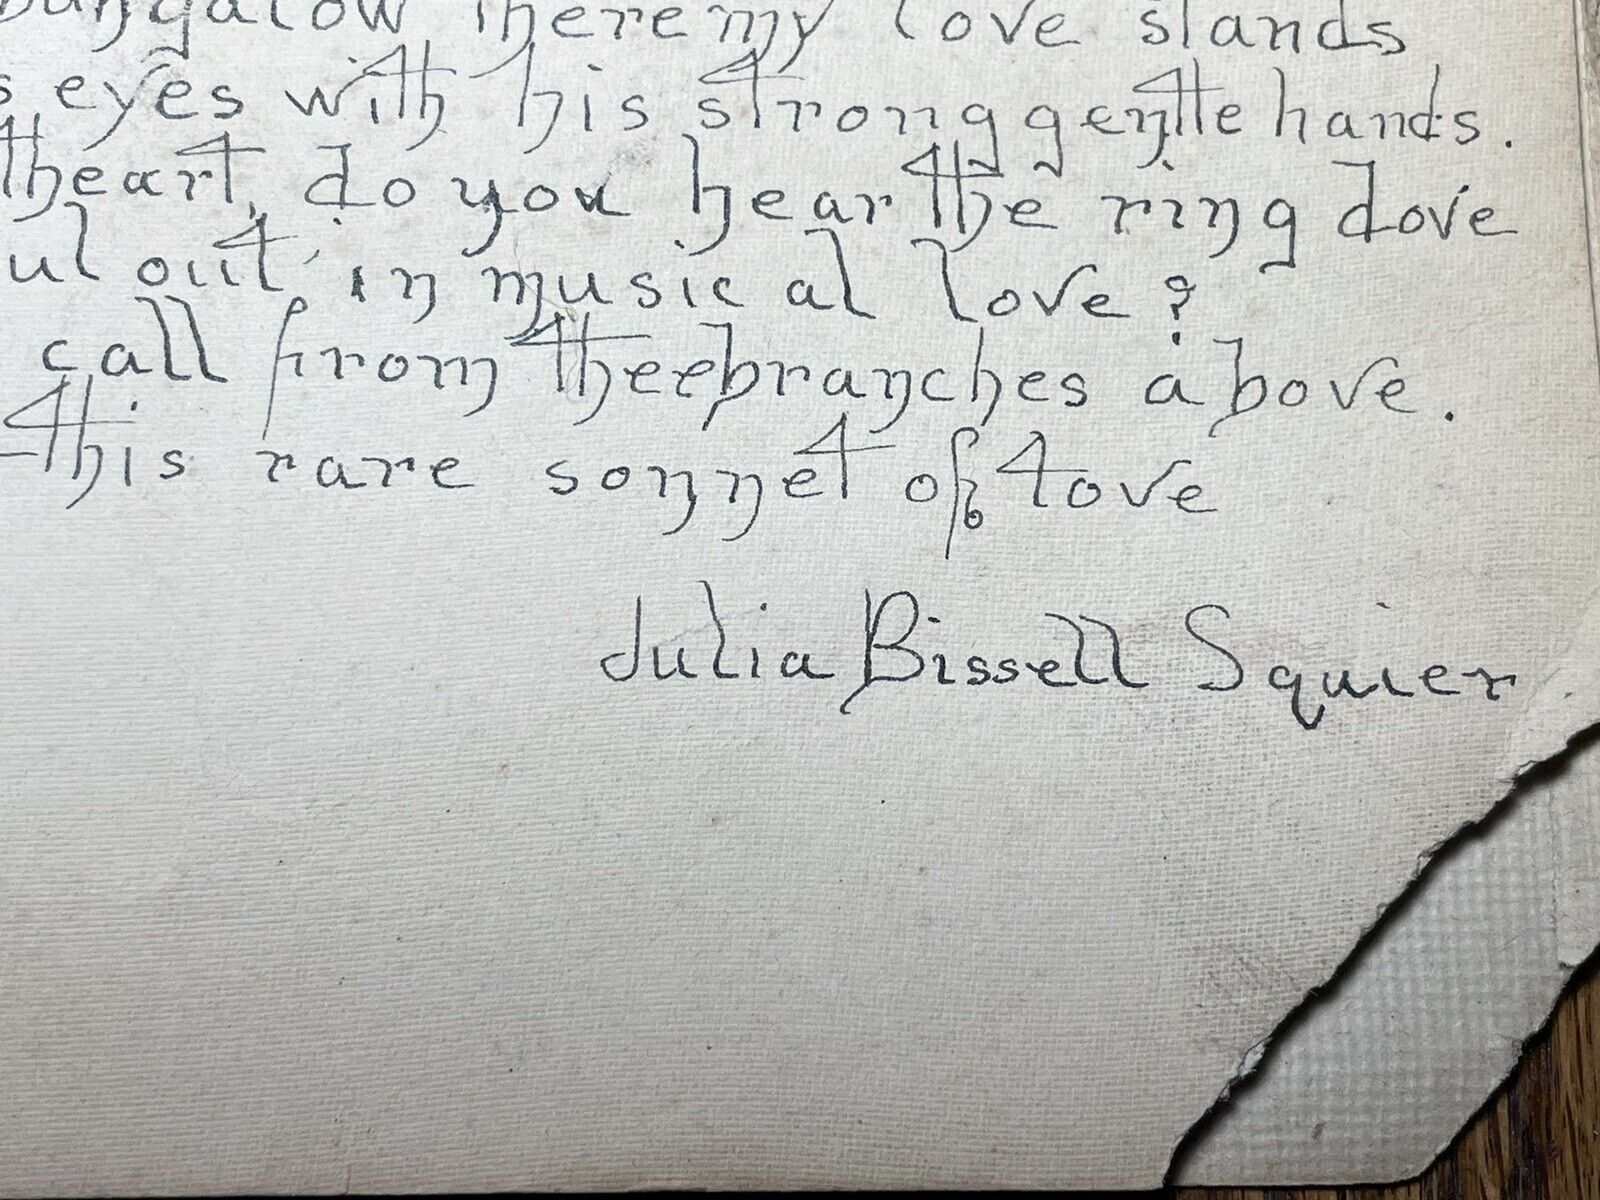 bungalow there my love stands
s eyes with his strong gentle hands.
theart, do you hear the ring dove
ul out in musical love?
call from thee branches above.
this rare sonnet of love
Julia Bissell Squier